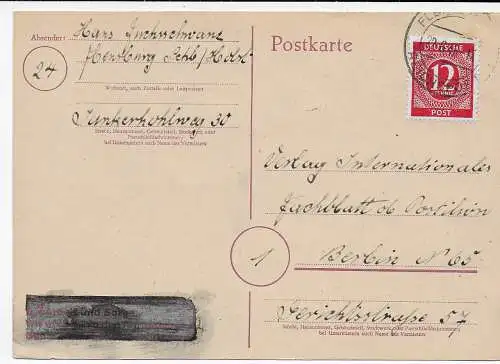 Absender: Hans
24 Flensburg Schl/Holst
Wohnort, auch Zustell- oder Leitpostamt
Junkerhohlweg 30
Straße, Hausnummer, Gebäudeteil, Stockwerk oder
Postschließfachnummer;
bei Untermietern auch Name des Vermieters
Postkarte
DEUTSCHE
12
POST
Verlag Internationales
Fachblatt Postillion
1 Berlin N 65
Gerichtsstraße 57
Straße, Hausnummer, Gebäudeteil, Stockwerk oder Postschließfachnummer;
bei Untermietern auch Name des Vermieters